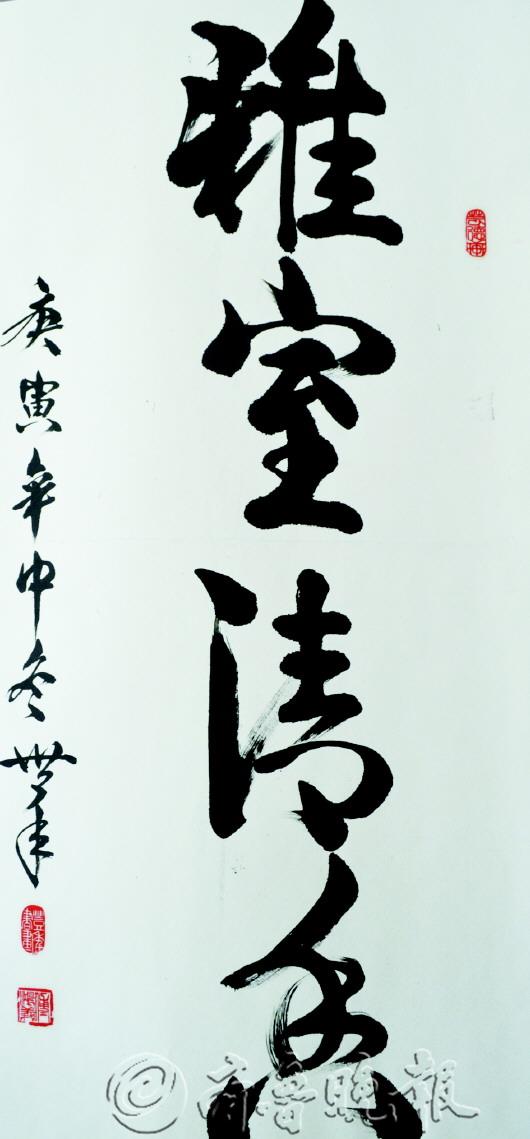 雅室清香
庚寅年中冬
齊魯晚報